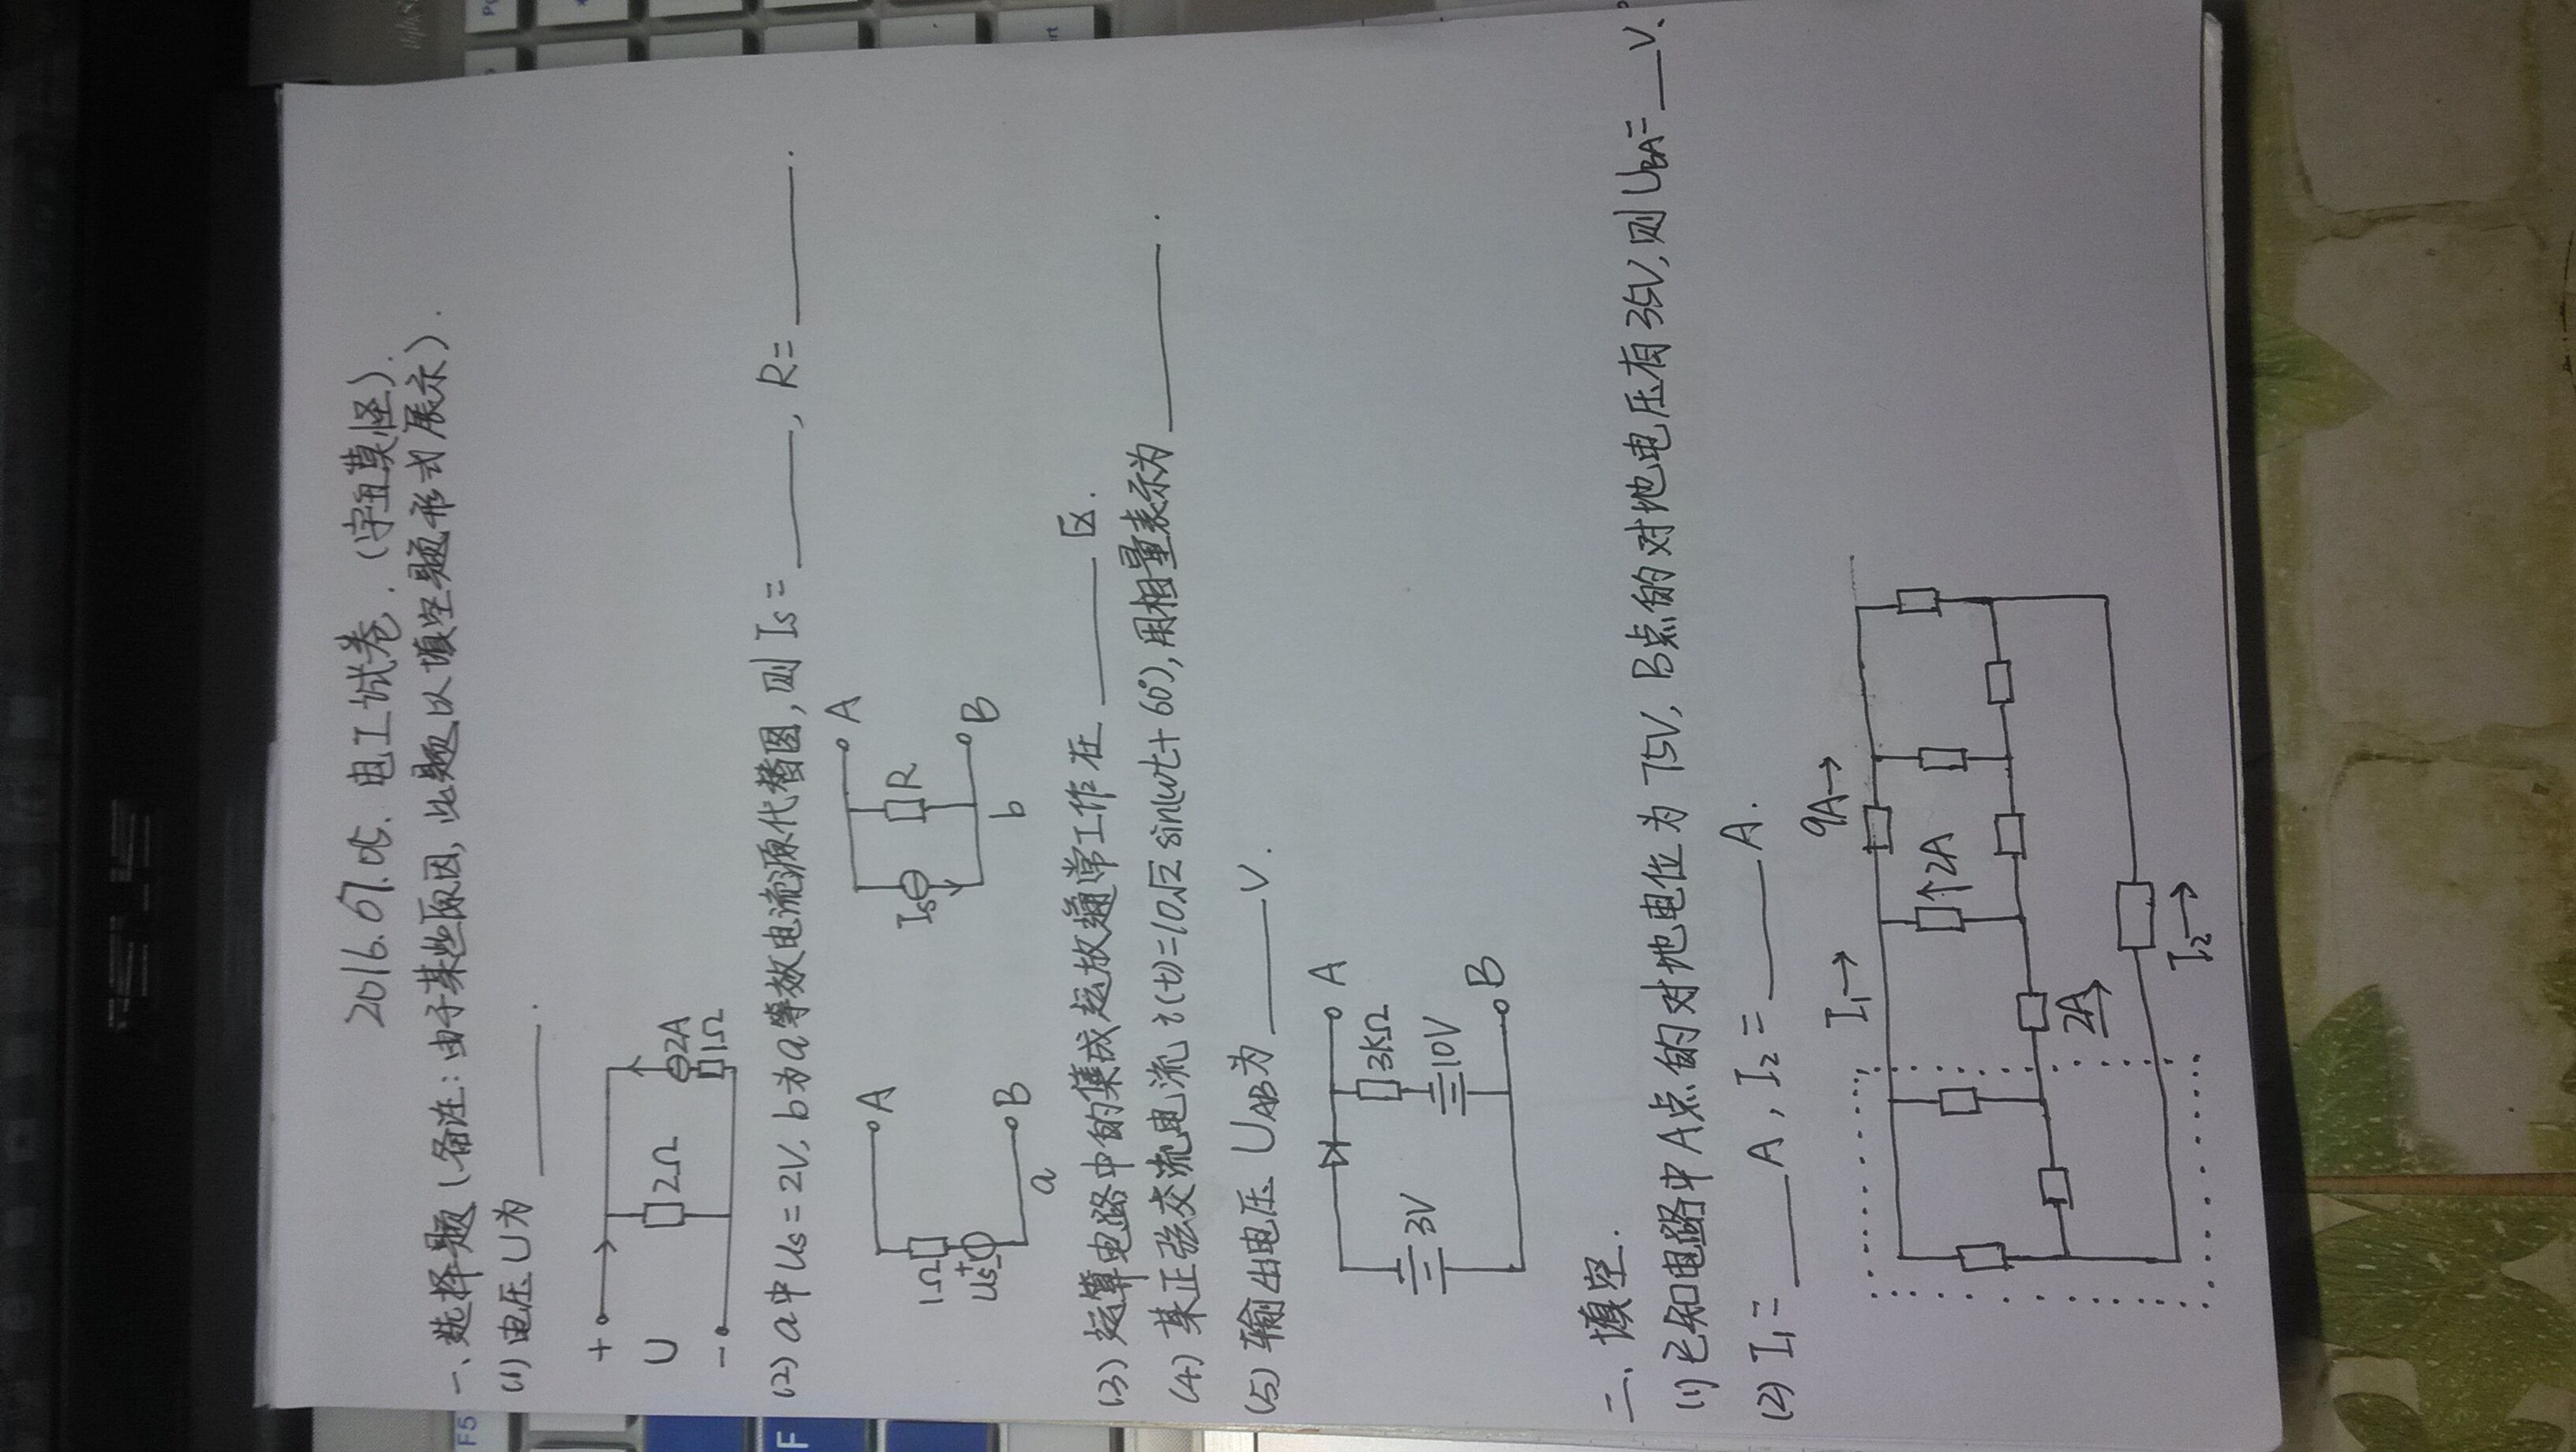 2016.07.05. 电工试卷. (字丑莫怪).
一、选择题 (备注: 由于某些原因, 此题以填空题形式展示).
(1) 电压U为 ______.
+
U
-
2Ω
2A
1Ω
(2) a中Us=2V, b为a等效电流源代替图, 则 Is= ______, R= ______.
1Ω
Us
+
-
A
B
a
Is
R
A
B
b
(3) 运算电路中的集成运放通常工作在 ______ 区.
(4) 某正弦交流电流 i(t)=10√2 sin(ωt+60°), 用相量表示为 ______.
(5) 输出电压 UAB为 ______ V.
3V
3KΩ
10V
A
B
二、填空.
(1) 已知电路中A点的对地电位为 75V, B点的对地电压有35V, 则UBA= ___V.
(2) I1= ______A, I2= ______A.
I1→
9A→
↑2A
2A→
I2→
F5
F